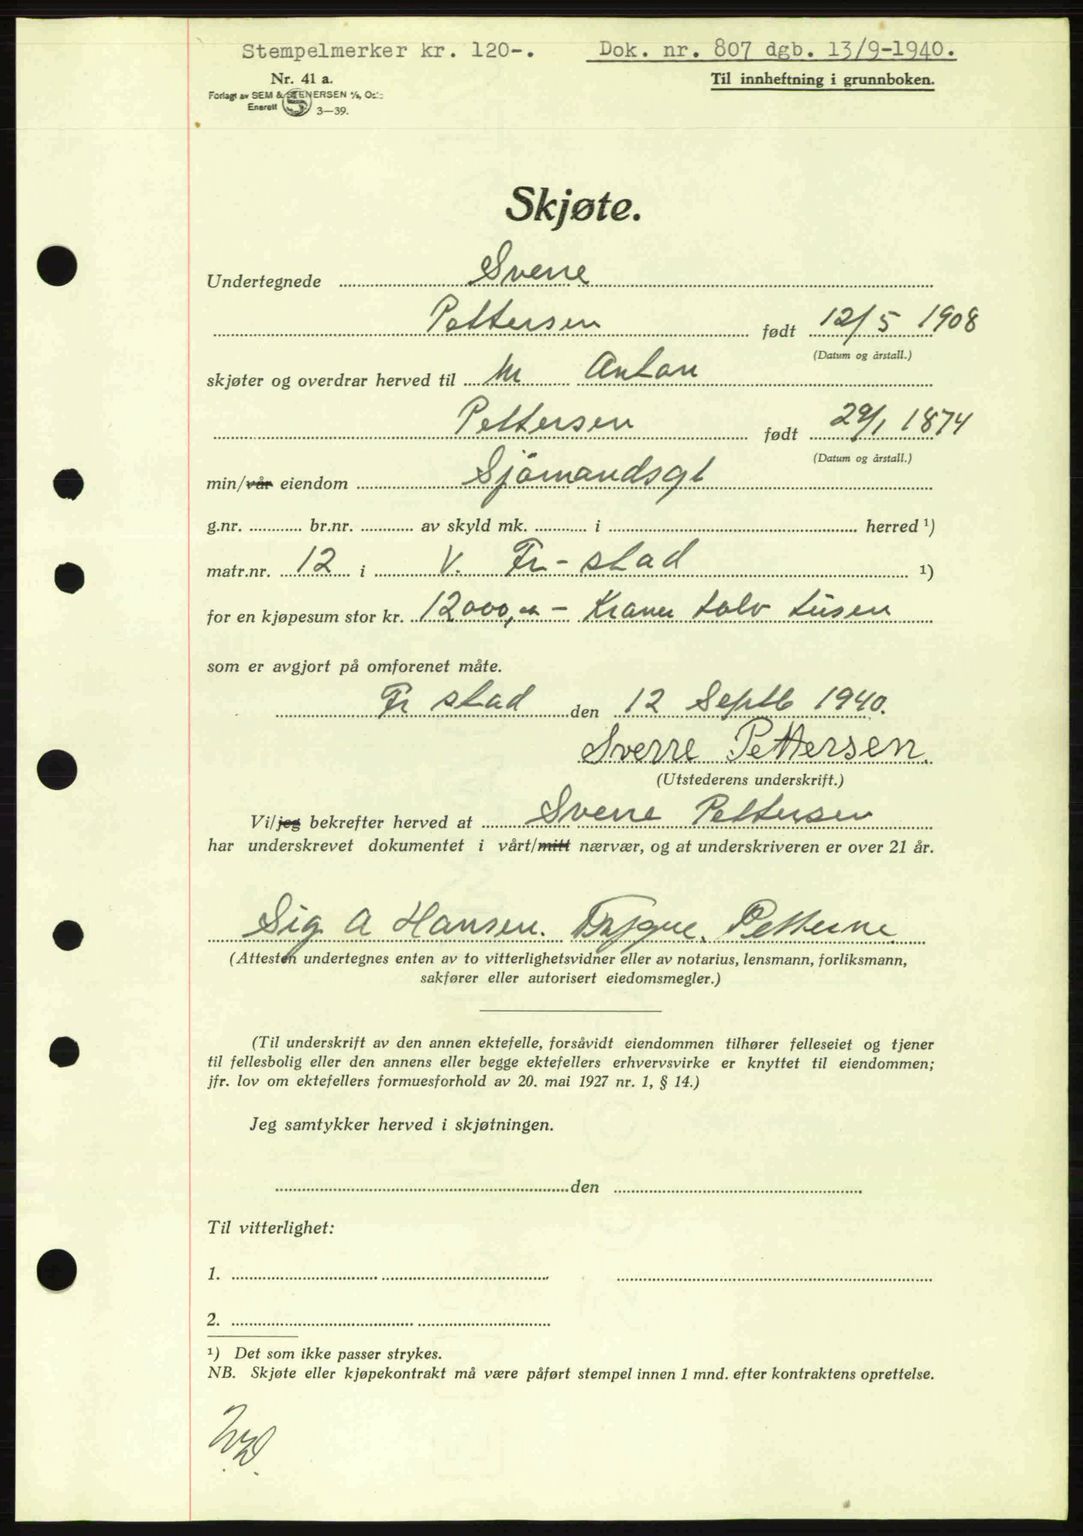 Stempelmerker kr. 120-. Dok. nr. 807 dgb. 13/9-1940.
Nr. 41 a. Til innheftning i grunnboken.
Forlagt av SEM & STENERSEN A/S, Oslo
Enerett 3—39.
Skjøte.
Undertegnede Sverre
Pettersen født 12/5 1908
(Datum og årstall.)
skjøter og overdrar herved til Anton
Pettersen født 29/1 1874
(Datum og årstall.)
min/vår eiendom Sjömandsgt
g.nr. br.nr. av skyld mk. i herred ¹)
matr.nr. 12 i V. Fr-stad ¹)
for en kjøpesum stor kr. 12000,00 - Kroner tolv tusen
som er avgjort på omforenet måte.
Fr stad den 12 Septb 1940.
Sverre Pettersen.
(Utstederens underskrift.)
Vi/jeg bekrefter herved at Sverre Pettersen
har underskrevet dokumentet i vårt/mitt nærvær, og at underskriveren er over 21 år.
Sig. A Hansen.
(Attesten undertegnes enten av to vitterlighetsvidner eller av notarius, lensmann, forliksmann,
sakfører eller autorisert eiedomsmegler.)
(Til underskrift av den annen ektefelle, forsåvidt eiendommen tilhører felleseiet og tjener
til fellesbolig eller den annens eller begge ektefellers erhvervsvirke er knyttet til eiendommen;
jfr. lov om ektefellers formuesforhold av 20. mai 1927 nr. 1, § 14.)
Jeg samtykker herved i skjøtningen.
den
Til vitterlighet:
1.
2.
¹) Det som ikke passer strykes.
NB. Skjøte eller kjøpekontrakt må være påført stempel innen 1 mnd. efter kontraktens oprettelse.